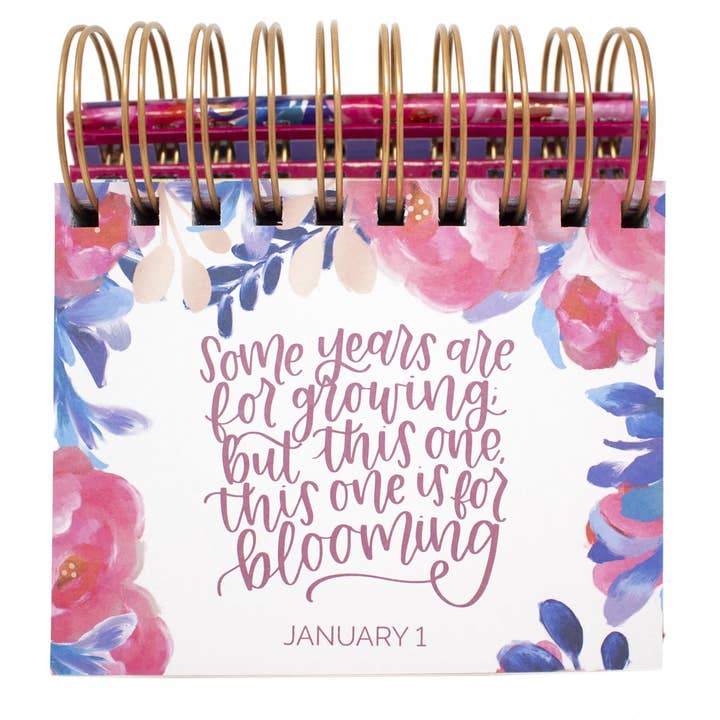 some years are
for growing;
but this one,
this one is for
blooming
JANUARY 1